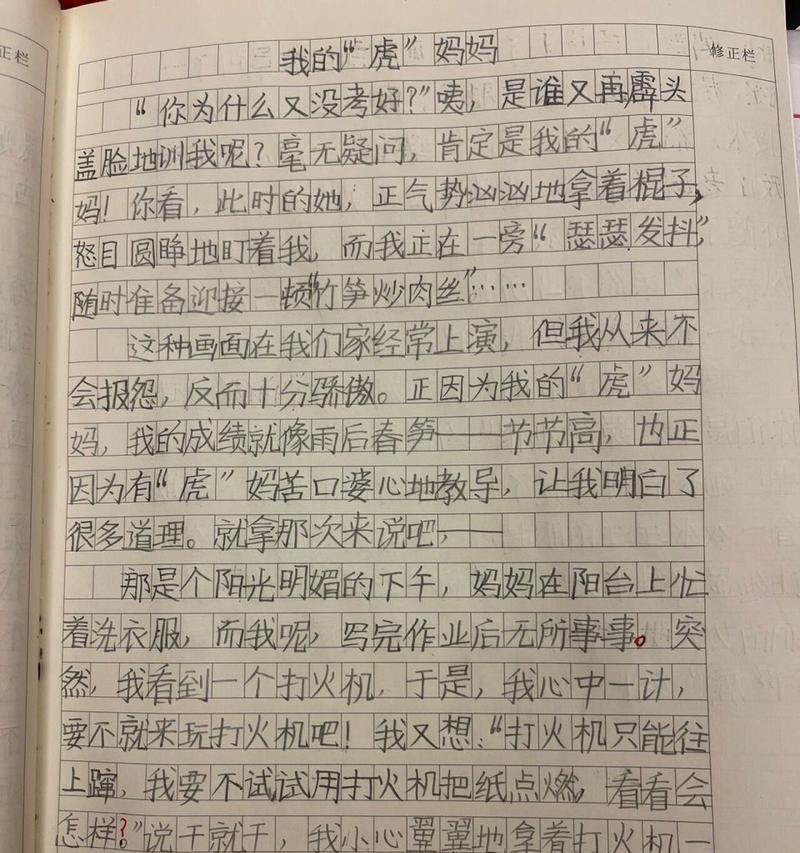 正栏
修正栏
我的“虎”妈妈
“你为什么又没考好?”咦，是谁又再霹头
盖脸地训我呢？毫无疑问，肯定是我的“虎”
妈！你看，此时的她，正气势汹汹地拿着棍子，
怒目圆睁地盯着我，而我正在一旁“瑟瑟发抖”
随时准备迎接一顿“竹笋炒肉丝”……
这种画面在我们家经常上演，但我从来不
会报怨，反而十分骄傲。正因为我的“虎”妈
妈，我的成绩就像雨后春笋——节节高，也正
因为有“虎”妈苦口婆心地教导，让我明白了
很多道理。就拿那次来说吧，——
那是个阳光明媚的下午，妈妈在阳台上忙
着洗衣服，而我呢，写完作业后无所事事。突
然，我看到一个打火机，于是，我心中一计，
要不就来玩打火机吧！我又想：“打火机只能往
上蹿，我要不试试用打火机把纸点燃，看看会
怎样？”说干就干，我小心翼翼地拿着打火机一